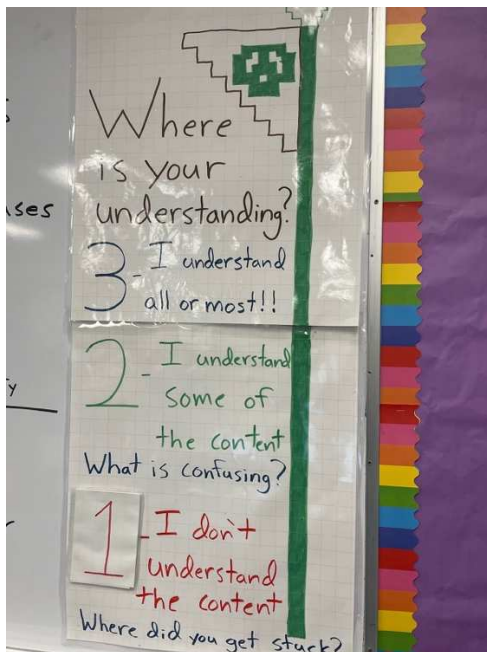 Where
is your
understanding?
3 - I understand
all or most!!
2 - I understand
some of
the content
What is confusing?
1 - I don't
understand
the content
Where did you get stuck?
ses